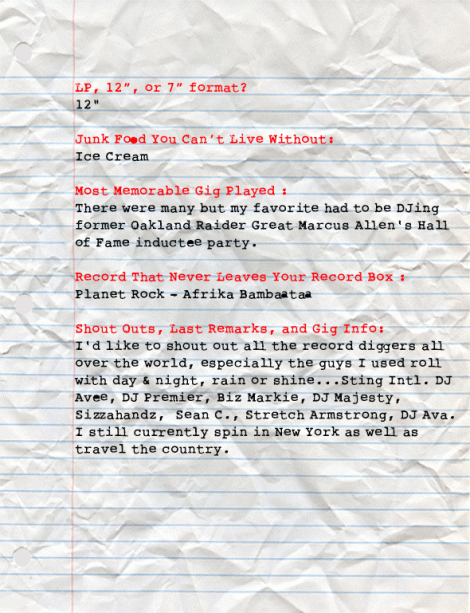 LP, 12", or 7" format?
12"
Junk Food You Can't Live Without:
Ice Cream
Most Memorable Gig Played :
There were many but my favorite had to be DJing
former Oakland Raider Great Marcus Allen's Hall
of Fame inductee party.
Record That Never Leaves Your Record Box :
Planet Rock - Afrika Bambaataa
Shout Outs, Last Remarks, and Gig Info:
I'd like to shout out all the record diggers all
over the world, especially the guys I used roll
with day & night, rain or shine...Sting Intl. DJ
Avee, DJ Premier, Biz Markie, DJ Majesty,
Sizzahandz, Sean C., Stretch Armstrong, DJ Ava.
I still currently spin in New York as well as
travel the country.